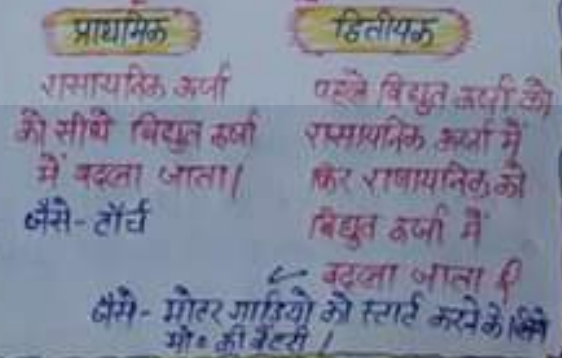 प्राथमिक
रासायनिक ऊर्जा
को सीधे विद्युत ऊर्जा
में बदला जाता।
जैसे - टॉर्च
द्वितीयक
पहले विद्युत ऊर्जा को
रासायनिक ऊर्जा में
फिर रासायनिक को
विद्युत ऊर्जा में
बदला जाता है
जैसे - मोटर गाडियो को स्टार्ट करने के लिये
मो० की बैटरी।